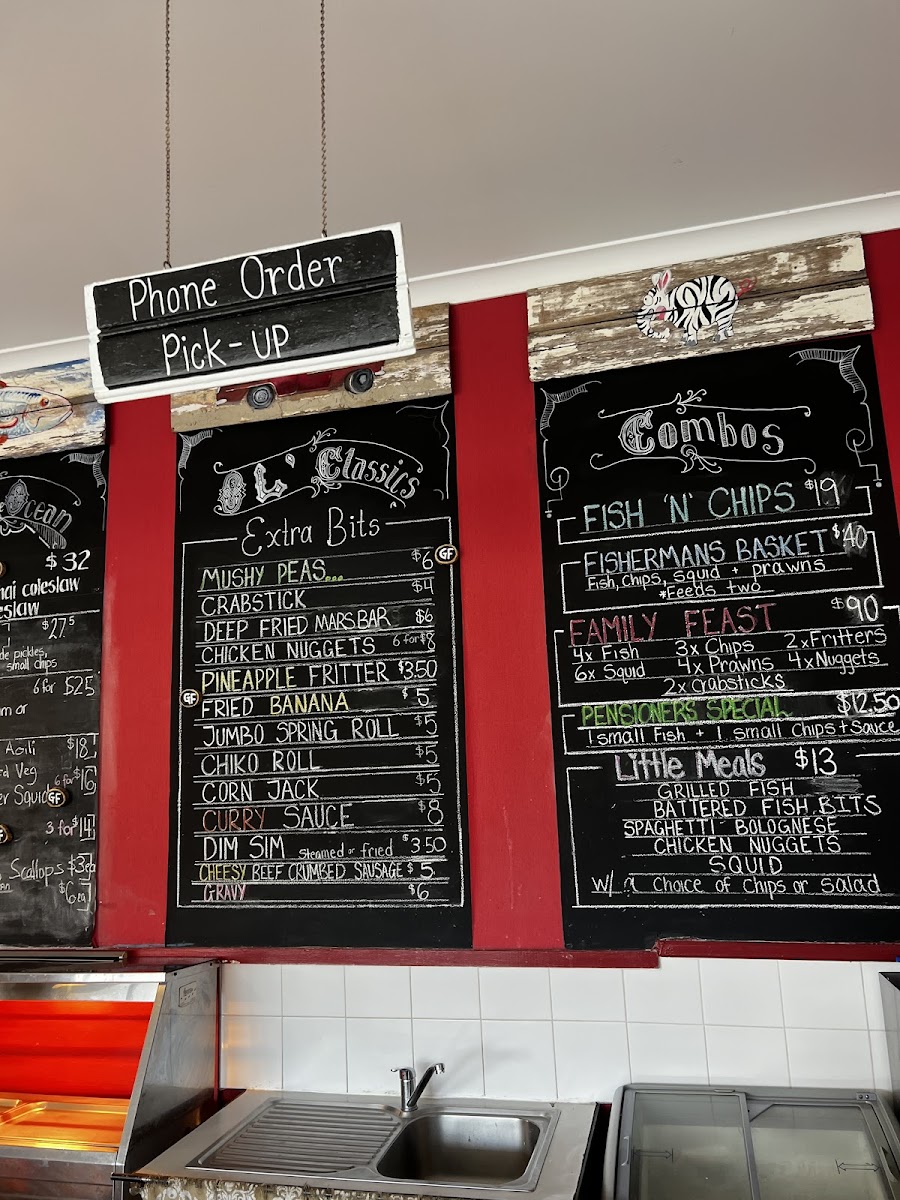 Phone Order
Pick-UP
Ocean
$32
coleslaw
eslaw
$27.5
de pickles,
small chips
6 for $25
m or
Aoili $18
Veg 6 for $16
Squid GF
3 for $14
Scallops $3ea
$6ea
OL' Classics
Extra Bits
MUSHY PEAS... $6 GF
CRABSTICK $4
DEEP FRIED MARSBAR $6
CHICKEN NUGGETS 6 for $8
PINEAPPLE FRITTER $3.50
GF FRIED BANANA $5
JUMBO SPRING ROLL $5
CHIKO ROLL $5
CORN JACK $5
CURRY SAUCE $8
DIM SIM Steamed or fried $3.50
CHEESY BEEF CRUMBED SAUSAGE $5
GRAVY $6
Combos
FISH 'N' CHIPS $19
FISHERMANS BASKET $40
Fish, Chips, squid + prawns
*Feeds two
FAMILY FEAST $90
4x Fish 3x Chips 2x Fritters
6x Squid 4x Prawns 4x Nuggets
2x Crabsticks
PENSIONERS SPECIAL $12.50
1 small Fish + 1 small Chips + Sauce
Little Meals $13
GRILLED FISH
BATTERED FISH BITS
SPAGHETTI BOLOGNESE
CHICKEN NUGGETS
SQUID
W/ a choice of chips or salad